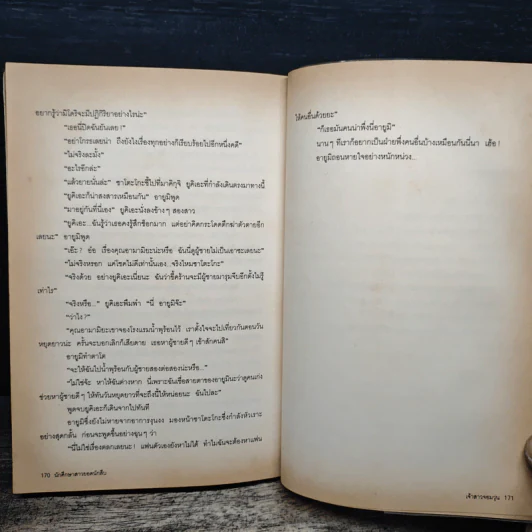 อยากรู้ว่ามิโดริจะมีปฏิกิริยาอย่างไรน่ะ"
"เธอนี่ปิดฉันยันเลย!"
"อย่าโกรธเลยน่า ถึงยังไงเรื่องทุกอย่างก็เรียบร้อยไปอีกหนึ่งคดี"
"ไม่จริงละมั้ง"
"อะไรอีกล่ะ"
"แล้วยายนั่นล่ะ" ซาโตะโกะชี้ไปที่มาคิกุจิ ยูคิเอะที่กำลังเดินตรงมาทางนี้
"ยูคิเอะก็น่าสงสารเหมือนกัน" อายูมิพูด
"มาอยู่กันที่นี่เอง" ยูคิเอะนั่งลงข้างๆ สองสาว
"ยูคิเอะ...ฉันรู้ว่าเธอคงรู้สึกช็อกมาก แต่อย่าคิดกระโดดตึกฆ่าตัวตายอีก
เลยนะ" อายูมิพูด
"เอ๊ะ? อ๋อ เรื่องคุณอามามิยะน่ะหรือ ฉันนี่ดูผู้ชายไม่เป็นเอาซะเลยนะ"
"ไม่จริงหรอก แค่โชคไม่ดีเท่านั้นเอง...จริงไหมซาโตะโกะ"
"จริงด้วย อย่างยูคิเอะเนี่ยนะ ฉันว่าขี้คร้านจะมีผู้ชายมารุมจีบอีกตั้งไม่รู้
เท่าไร"
"จริงหรือ..." ยูคิเอะพึมพำ "นี่ อายูมิจ๊ะ"
"ว่าไง?"
"คุณอามามิยะเขาจองโรงแรมน้ำพุร้อนไว้ เราตั้งใจจะไปเที่ยวกันตอนวัน
หยุดยาวน่ะ ครั้นจะบอกเลิกก็เสียดาย เธอหาผู้ชายดีๆ เข้าสักคนสิ"
อายูมิทำตาโต
"จะให้ฉันไปน้ำพุร้อนกับผู้ชายสองต่อสองน่ะหรือ..."
"ไม่ใช่จ้ะ หาให้ฉันต่างหาก นี่เพราะฉันเชื่อสายตาของอายูมินะว่าดูคนเก่ง
ช่วยหาผู้ชายดีๆ ให้ทันวันหยุดยาวที่จะถึงนี้ให้หน่อยนะ ฉันไปละ"
พูดจบยูคิเอะก็เดินจากไปทันที
อายูมิซึ่งยังไม่หายจากอาการงุนงง มองหน้าซาโตะโกะซึ่งกำลังหัวเราะ
อย่างสุดกลั้น ก่อนจะพูดขึ้นอย่างฉุนๆ ว่า
"นี่ไม่ใช่เรื่องตลกเลยนะ! แฟนตัวเองยังหาไม่ได้ ทำไมฉันจะต้องหาแฟน
170 นักศึกษาสาวยอดนักสืบ
ให้คนอื่นด้วยยะ"
"ก็เธอมันคนน่าพึ่งนี่อายูมิ"
นานๆ ทีเราก็อยากเป็นฝ่ายพึ่งคนอื่นบ้างเหมือนกันนี่นา เฮ้อ!
อายูมิถอนหายใจอย่างหนักหน่วง...
เจ้าสาวจอมวุ่น 171